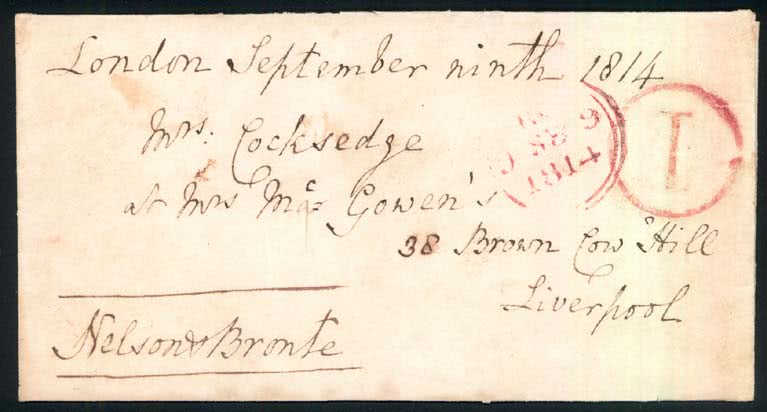 London September ninth 1814
Mrs. Cocksedge
at Mrs Mac Gowen's
38 Brown Cow Hill
Liverpool
Nelson & Bronte
9 SE 9
1814
I